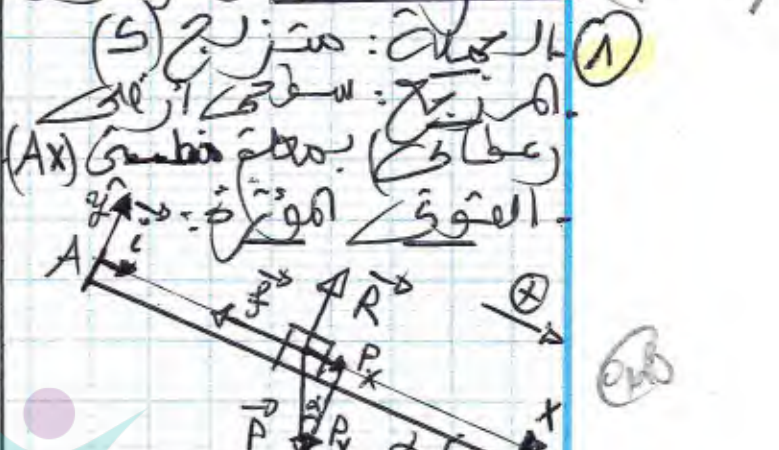 ① الجملة: متزلج (S)
المرجع: سطحي أرضي
(عطالي) بمعلم خطي (Ax)
القوى المؤثرة:
y
i
A
f
R
+
Px
x
P
α
Py
α